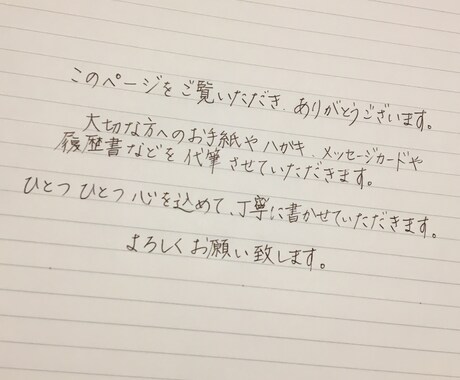 このページをご覧いただき、ありがとうございます。
大切な方へのお手紙やハガキ、メッセージカードや
履歴書などを代筆させていただきます。
ひとつひとつ心を込めて、丁寧に書かせていただきます。
よろしくお願い致します。